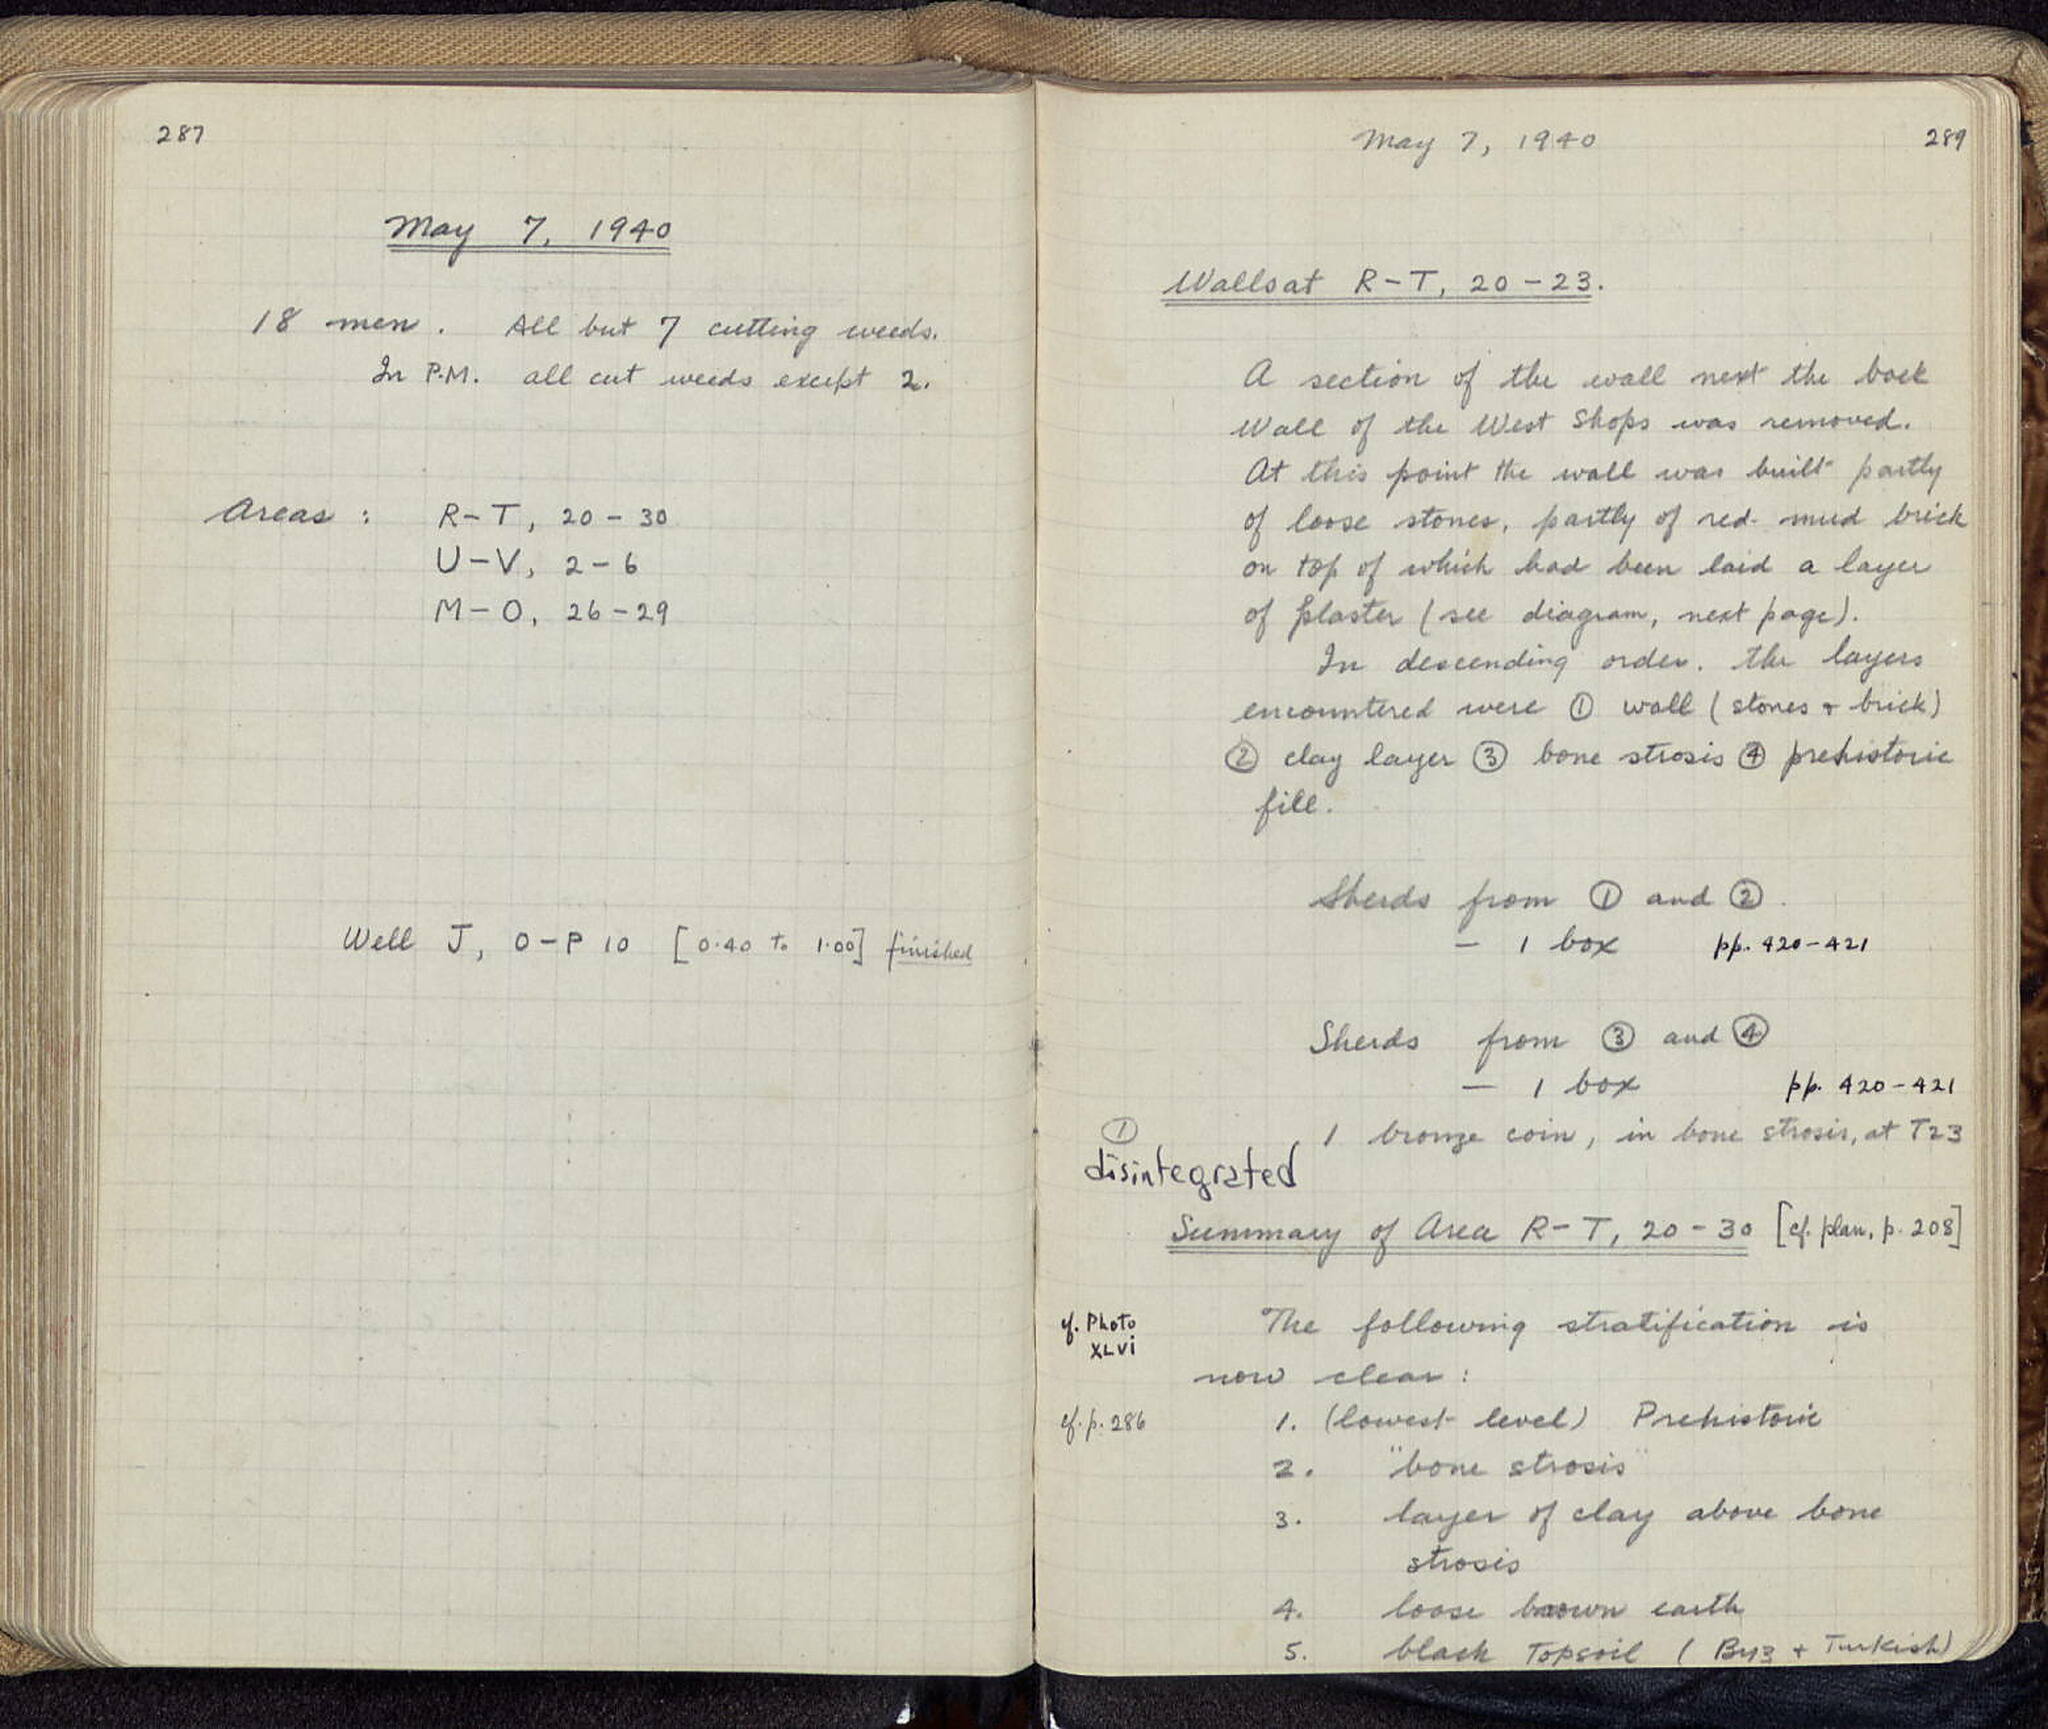 287
May 7, 1940
18 men. All but 7 cutting weeds.
In P.M. all cut weeds except 2.
Areas: R-T, 20-30
U-V, 2-6
M-O, 26-29
Well J, O-P 10 [0.40 to 1.00] finished
May 7, 1940
289
Walls at R-T, 20-23.
A section of the wall next the back
wall of the West Shops was removed.
At this point the wall was built partly
of loose stones, partly of red mud brick
on top of which had been laid a layer
of plaster (see diagram, next page).
In descending order, the layers
encountered were ① wall (stones + brick)
② clay layer ③ bone strosis ④ prehistoric
fill.
Sherds from ① and ②.
- 1 box pp. 420-421
Sherds from ③ and ④
- 1 box pp. 420-421
① 1 bronze coin, in bone strosis, at T23
disintegrated
Summary of Area R-T, 20-30 [cf. plan, p. 208]
cf. Photo XLVI
The following stratification is
now clear:
cf. p. 286
1. (lowest level) Prehistoric
2. "bone strosis"
3. layer of clay above bone
strosis
4. loose brown earth
5. black topsoil (Byz + Turkish)